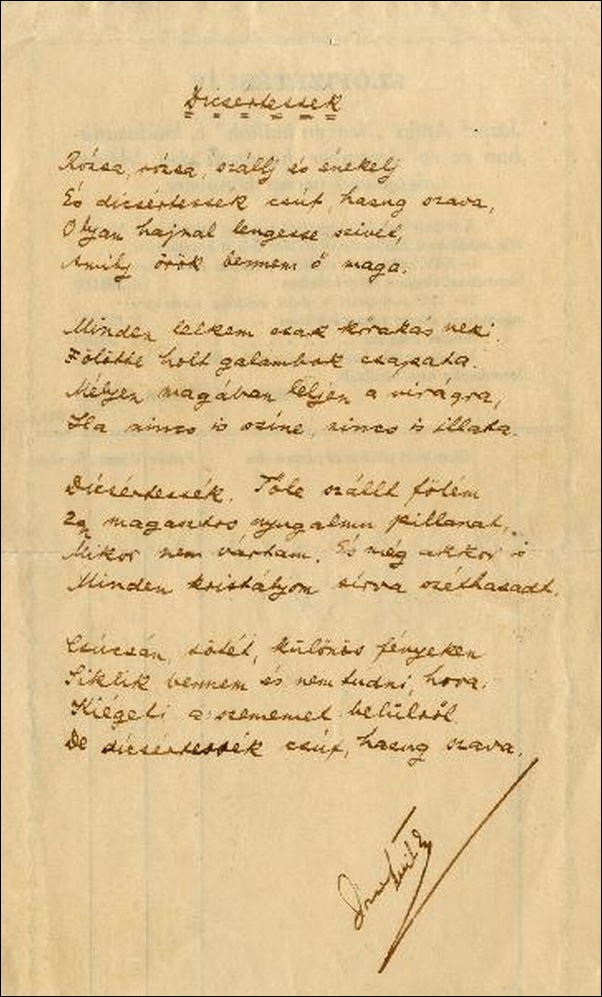 Dícsértessék
Rózsa, rózsa, szállj és énekelj
És dícsértessék csúf, hazug szava,
Olyan hajnal lengesse szivét,
Amily örök bennem ő maga.
Minden lelkem csak kirakás neki.
Fölötte holt galambok csapata.
Mélyen magában leljen a virágra,
Ha nincs is színe, nincs is illata.
Dícsértessék. Tőle szállt fölém
Egy magasztos nyugalmu pillanat,
Mikor nem vártam. És még akkor is
Minden kristályom sírva széthasadt.
Csúcsán, sötét, különös fényeken
Siklik bennem és nem tudni, hova.
Kiégeti a szememet belülről.
De dícsértessék csúf, hazug szava.